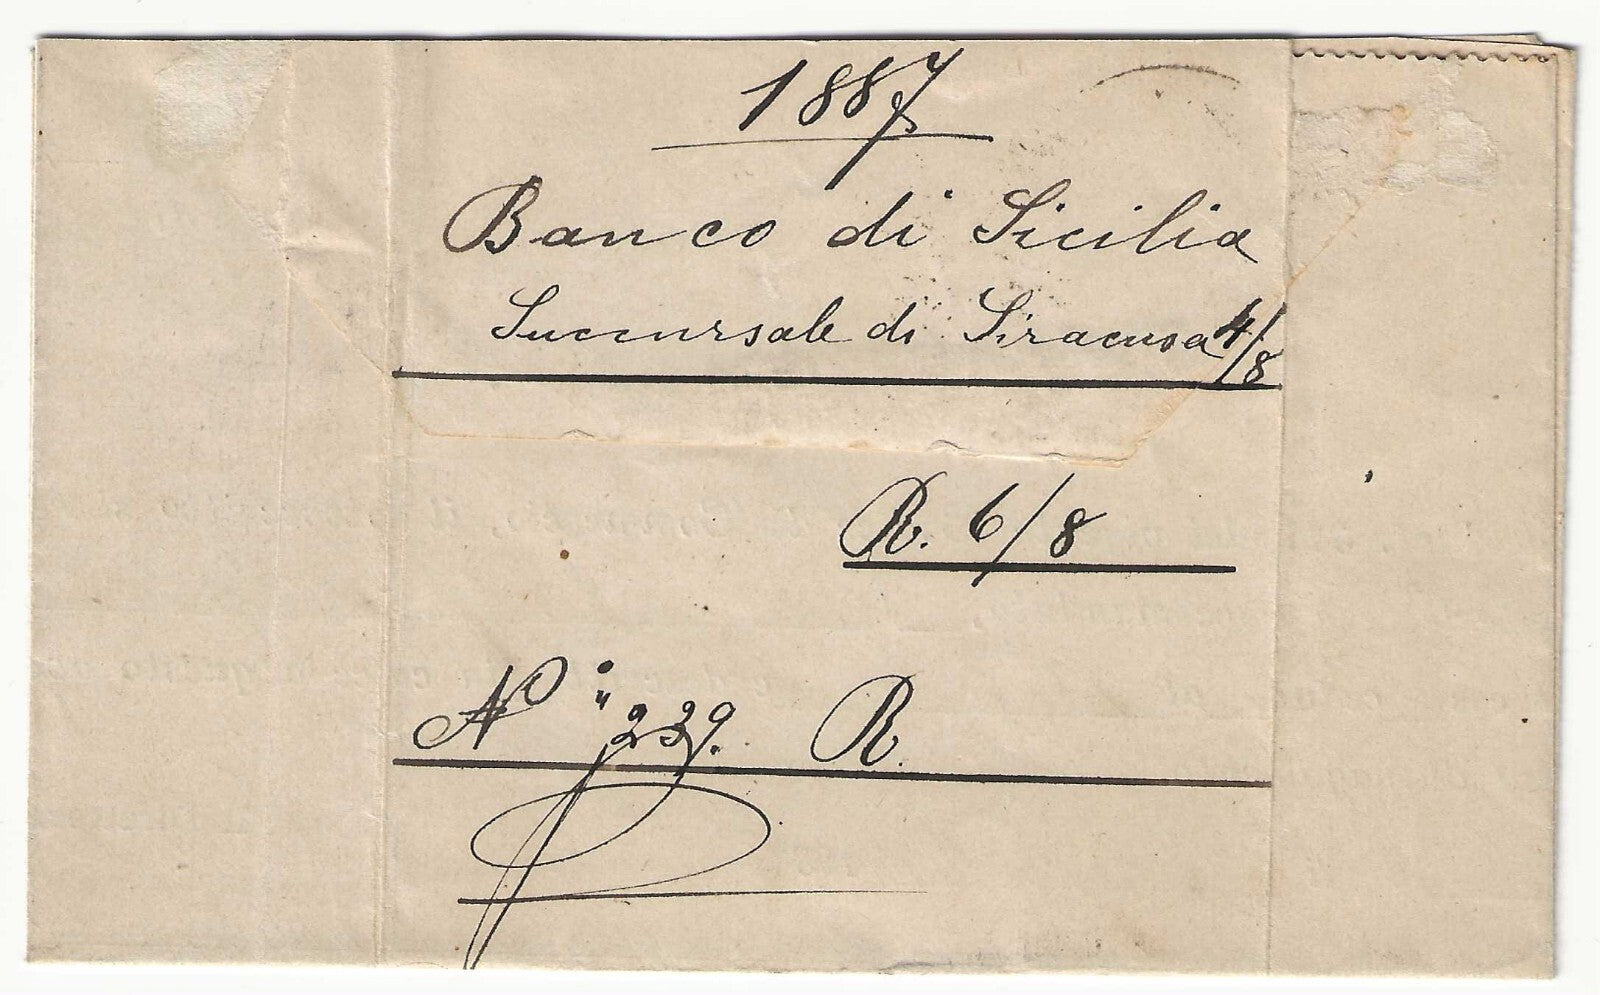 1887
Banco di Sicilia
Succursale di Siracusa 4/8
R. 6/8
N° 239. R.